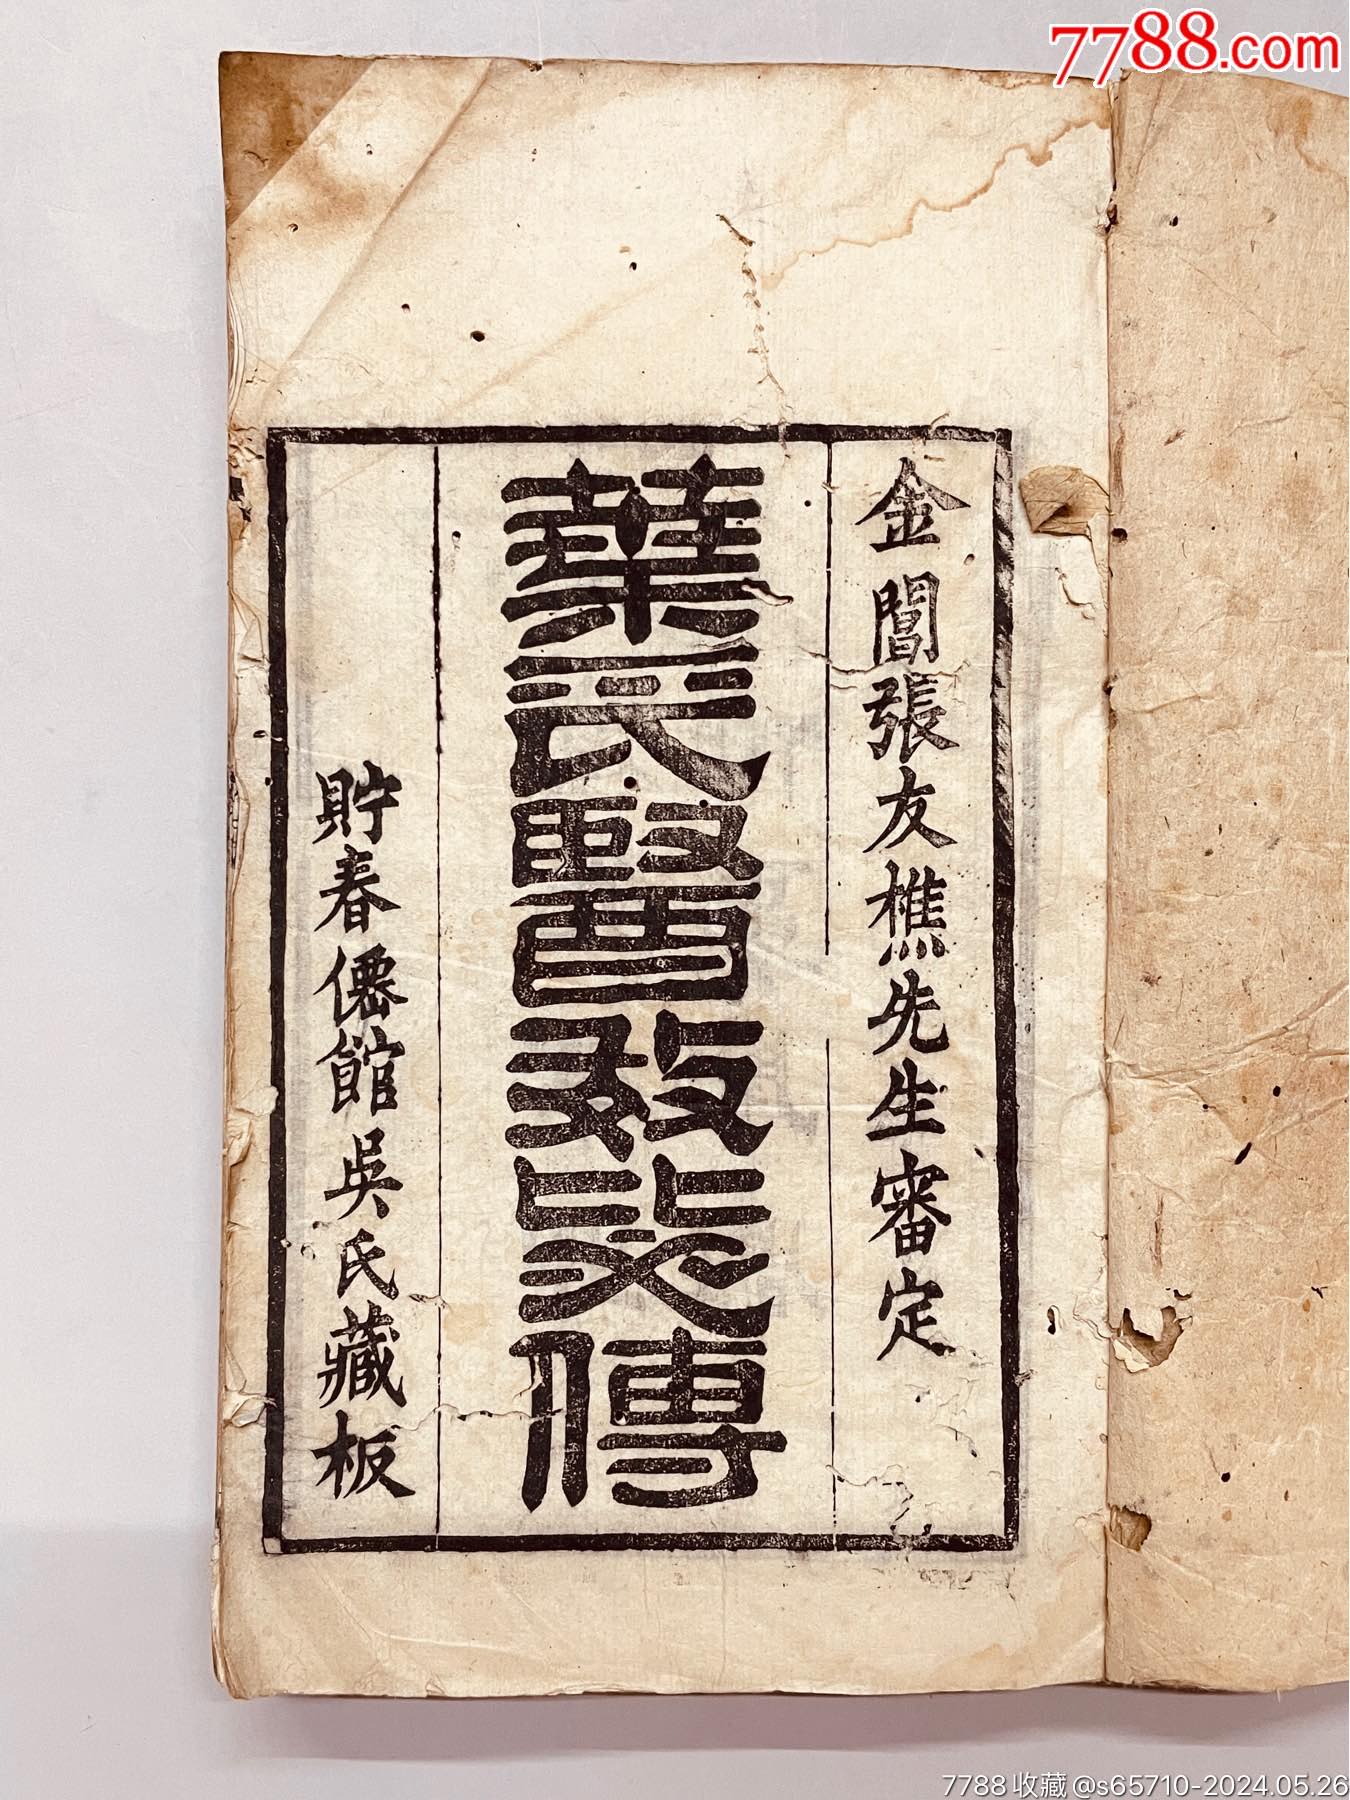 7788.com
金閶張友樵先生審定
葉氏醫效毖傳
貯春僊館吳氏藏板
7788收藏@s65710-2024.05.26